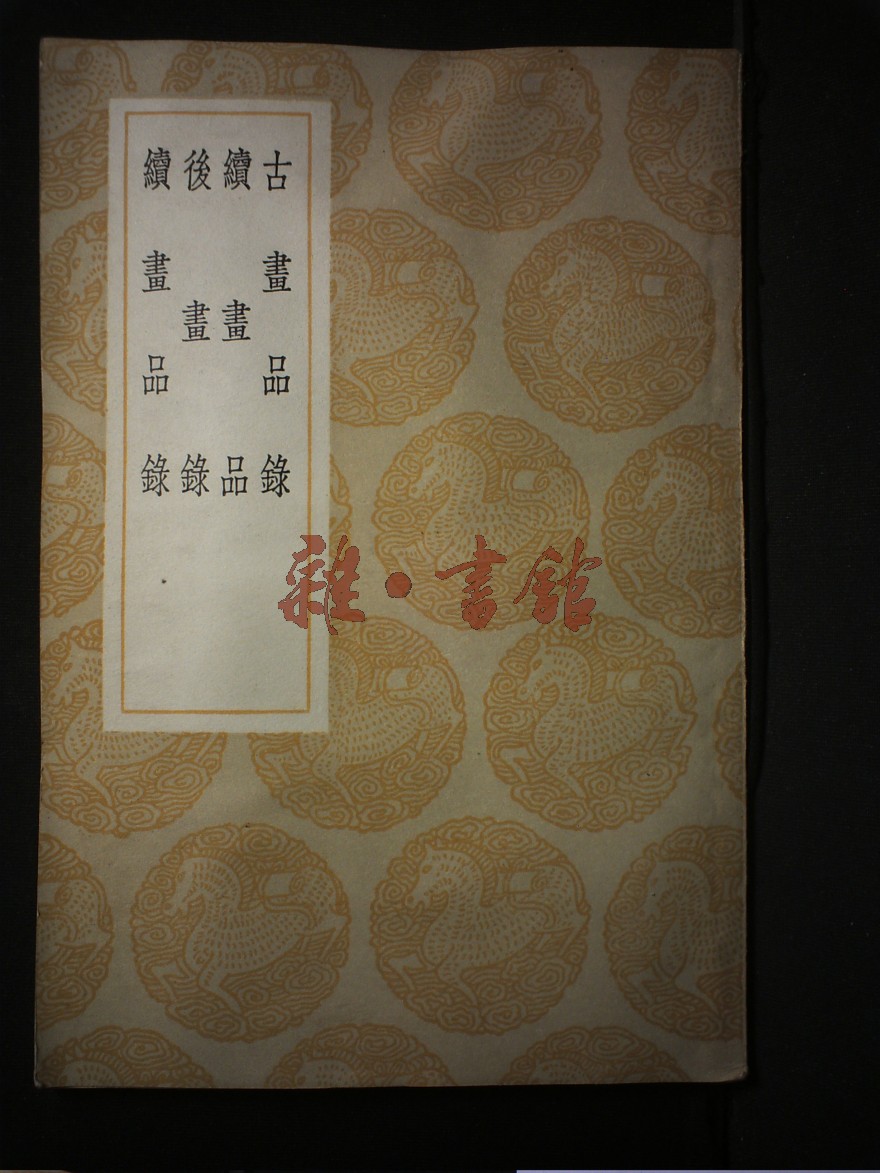 古畫品錄
續畫品
後畫錄
續畫品錄
雜·書館